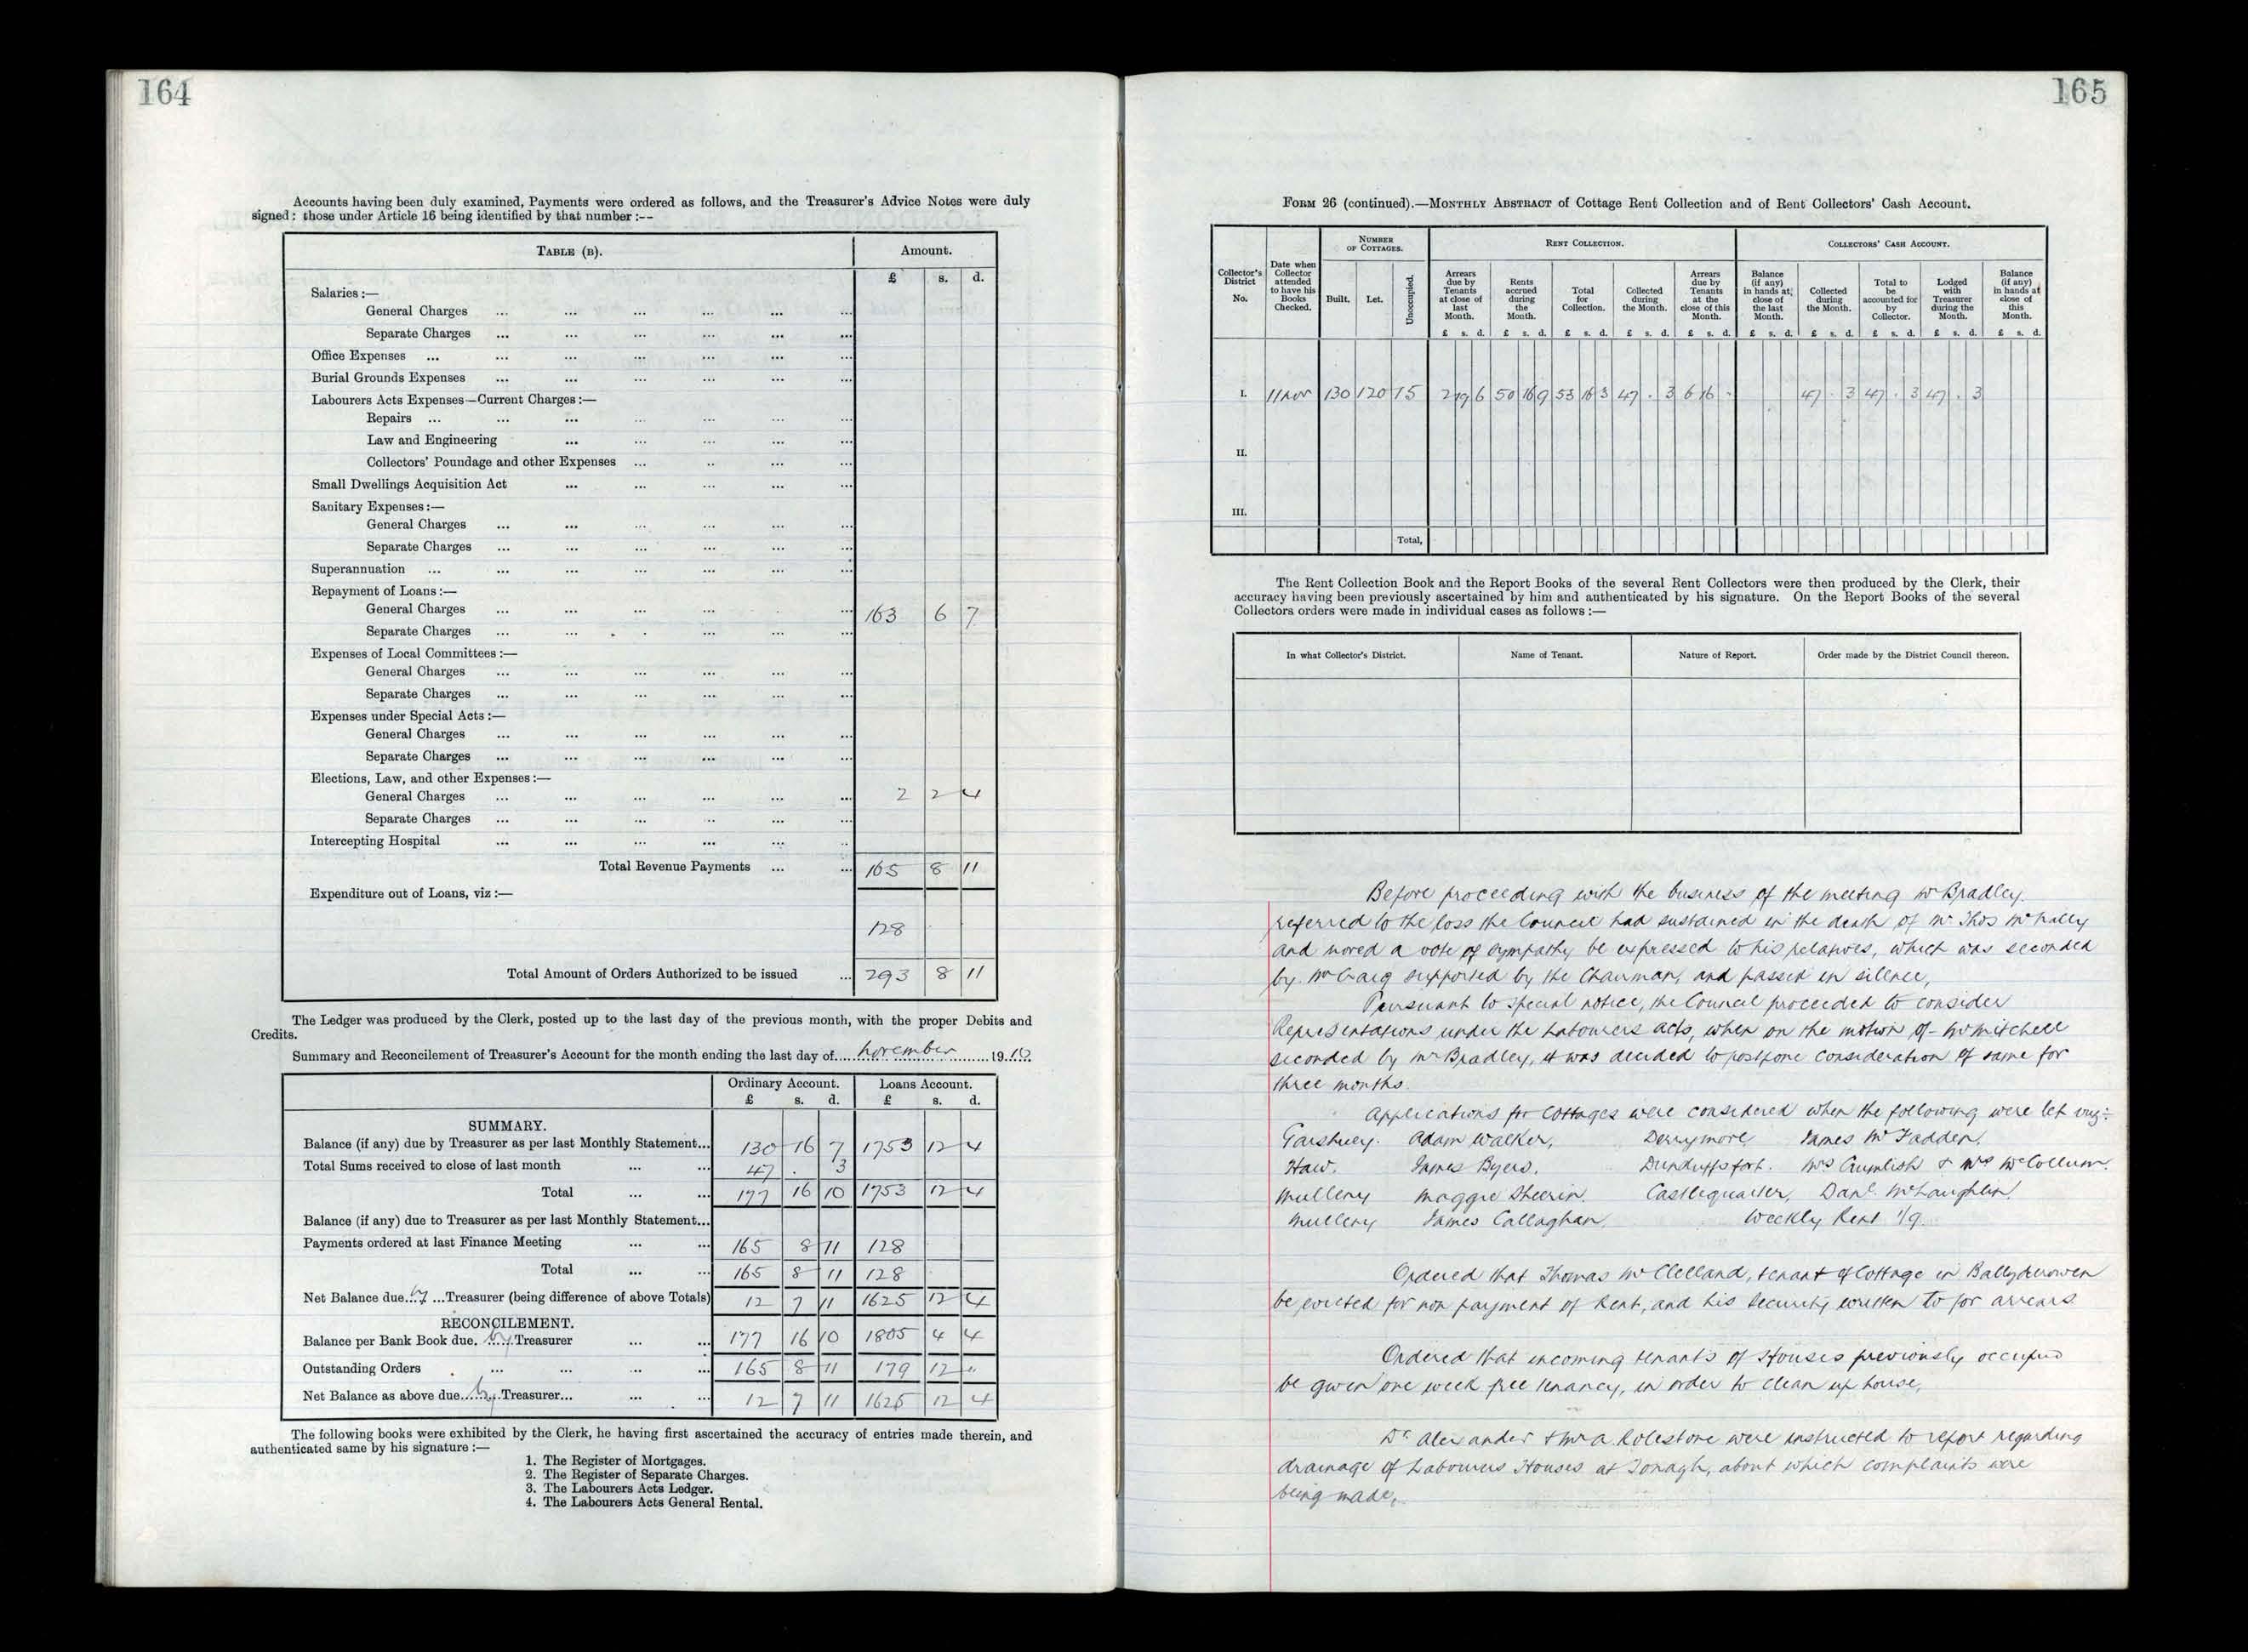 164
Accounts having been duly examined, Payments were ordered as follows, and the Treasurer's Advice Notes were duly
signed: those under Article 16 being identified by that number :--
TABLE (B). Amount.
£ s. d.
Salaries :—
General Charges
Separate Charges
Office Expenses
Burial Grounds Expenses
Labourers Acts Expenses—Current Charges :—
Repairs
Law and Engineering
Collectors' Poundage and other Expenses
Small Dwellings Acquisition Act
Sanitary Expenses :—
General Charges
Separate Charges
Superannuation
Repayment of Loans :—
General Charges 163 6 7
Separate Charges
Expenses of Local Committees :—
General Charges
Separate Charges
Expenses under Special Acts :—
General Charges
Separate Charges
Elections, Law, and other Expenses :—
General Charges 2 2 4
Separate Charges
Intercepting Hospital
Total Revenue Payments 165 8 11
Expenditure out of Loans, viz :—
128
Total Amount of Orders Authorized to be issued 293 8 11
The Ledger was produced by the Clerk, posted up to the last day of the previous month, with the proper Debits and
Credits.
Summary and Reconcilement of Treasurer's Account for the month ending the last day of November 1910
Ordinary Account. Loans Account.
£ s. d. £ s. d.
SUMMARY.
Balance (if any) due by Treasurer as per last Monthly Statement... 130 16 7 1753 12 4
Total Sums received to close of last month 47 . 3
Total 177 16 10 1753 12 4
Balance (if any) due to Treasurer as per last Monthly Statement...
Payments ordered at last Finance Meeting 165 8 11 128
Total 165 8 11 128
Net Balance due by Treasurer (being difference of above Totals) 12 7 11 1625 12 4
RECONCILEMENT.
Balance per Bank Book due by Treasurer 177 16 10 1805 4 4
Outstanding Orders 165 8 11 179 12 "
Net Balance as above due by Treasurer... 12 7 11 1625 12 4
The following books were exhibited by the Clerk, he having first ascertained the accuracy of entries made therein, and
authenticated same by his signature :—
1. The Register of Mortgages.
2. The Register of Separate Charges.
3. The Labourers Acts Ledger.
4. The Labourers Acts General Rental.
165
FORM 26 (continued).—MONTHLY ABSTRACT of Cottage Rent Collection and of Rent Collectors' Cash Account.
Collector's District No. Date when Collector attended to have his Books Checked. NUMBER OF COTTAGES. RENT COLLECTION. COLLECTORS' CASH ACCOUNT.
Built. Let. Unoccupied. Arrears due by Tenants at close of last Month. Rents accrued during the Month. Total for Collection. Collected during the Month. Arrears due by Tenants at the close of this Month. Balance (if any) in hands at close of the last Month. Collected during the Month. Total to be accounted for by Collector. Lodged with Treasurer during the Month. Balance (if any) in hands at close of this Month.
£ s. d. £ s. d. £ s. d. £ s. d. £ s. d. £ s. d. £ s. d. £ s. d. £ s. d. £ s. d.
I. 11 Nov 130 120 15 2 19 6 50 16 9 53 16 3 47 . 3 6 16 - 47 . 3 47 . 3 47 . 3
II.
III.
Total,
The Rent Collection Book and the Report Books of the several Rent Collectors were then produced by the Clerk, their
accuracy having been previously ascertained by him and authenticated by his signature. On the Report Books of the several
Collectors orders were made in individual cases as follows :—
In what Collector's District. Name of Tenant. Nature of Report. Order made by the District Council thereon.
Before proceeding with the business of the meeting Mr Bradley
referred to the loss the Council had sustained in the death of Mr Thos McNally
and moved a vote of sympathy be expressed to his relatives, which was seconded
by Mr Craig supported by the Chairman, and passed in silence,
Pursuant to special notice, the Council proceeded to consider
Representations under the Labourers Acts, when on the motion of Mr Mitchell
seconded by Mr Bradley, it was decided to postpone consideration of same for
three months.
Applications for Cottages were considered when the following were let viz:-
Garshuey. Adam Walker, Derrymore James McFadden,
Haw. James Byers, Dunduffsfort. Mrs Crumlish & Mrs McCollum.
Mulleny Maggie Sheerin. Castlequarter, Danl. McLaughlin.
Mulleny James Callaghan. Weekly Rent 1/9.
Ordered that Thomas McClelland, tenant of Cottage in Ballyderowen
be evicted for non payment of Rent, and his security written to for arrears.
Ordered that incoming tenants of Houses previously occupied
be given one week free tenancy, in order to clean up house,
Dr. Alexander & Mr A. Rolestone were instructed to report regarding
drainage of Labourers Houses at Tonagh, about which complaints were
being made.